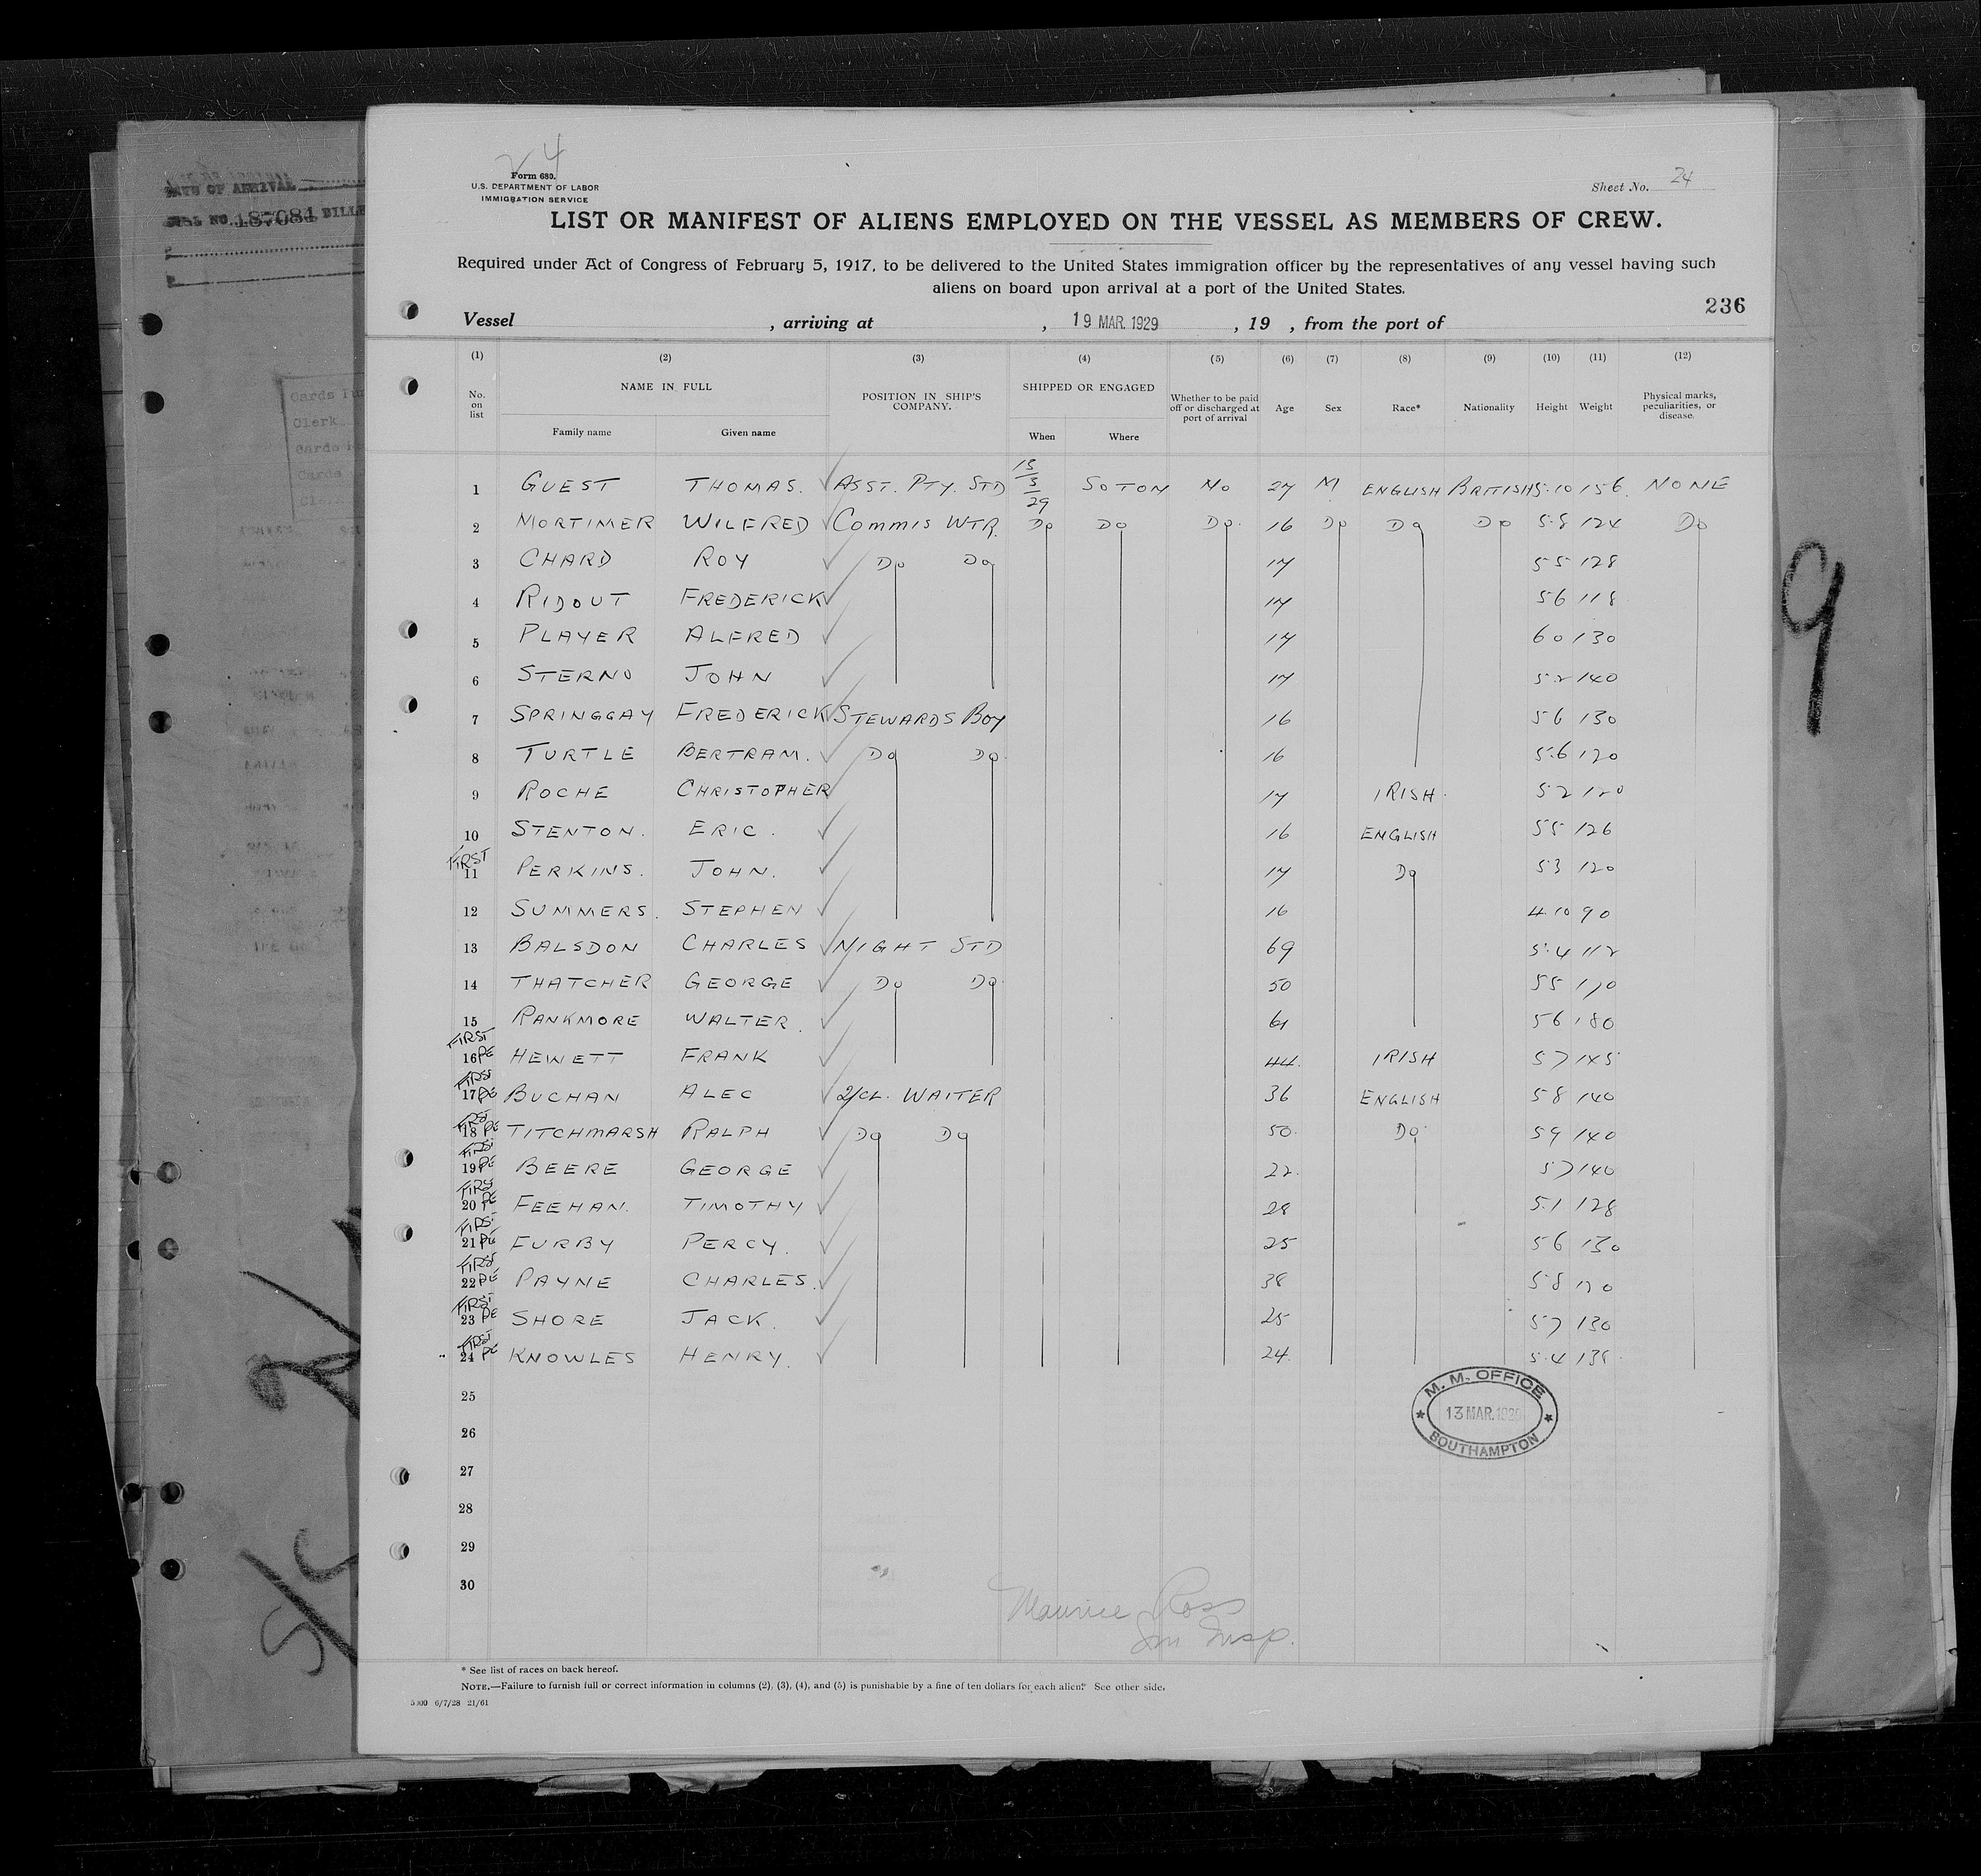 4
Form 680.
U.S. DEPARTMENT OF LABOR
IMMIGRATION SERVICE
Sheet No. 24
DATE OF ARRIVAL
NO. 187084
LIST OR MANIFEST OF ALIENS EMPLOYED ON THE VESSEL AS MEMBERS OF CREW.
Required under Act of Congress of February 5, 1917, to be delivered to the United States immigration officer by the representatives of any vessel having such
aliens on board upon arrival at a port of the United States.
236
Vessel , arriving at , 19 MAR. 1929 , 19 , from the port of
(1) (2) (3) (4) (5) (6) (7) (8) (9) (10) (11) (12)
No. on list NAME IN FULL Family name Given name POSITION IN SHIP'S COMPANY. SHIPPED OR ENGAGED When Where Whether to be paid off or discharged at port of arrival Age Sex Race* Nationality Height Weight Physical marks, peculiarities, or disease.
1 GUEST THOMAS. ASST. PTY. STD 13/3/29 SOTON NO 27 M ENGLISH BRITISH 5.10 156 NONE
2 MORTIMER WILFRED COMMIS WTR. DO DO DO. 16 DO DO DO 5.8 124 DO
3 CHARD ROY DO DO 17 5 5 128
4 RIDOUT FREDERICK 17 5 6 118
5 PLAYER ALFRED 17 6 0 130
6 STERNO JOHN 17 5.2 140
7 SPRINGGAY FREDERICK STEWARDS BOY 16 5 6 130
8 TURTLE BERTRAM. DO DO. 16 5.6 120
9 ROCHE CHRISTOPHER 17 IRISH. 5 2 120
10 STENTON. ERIC. 16 ENGLISH 5 5 126
FIRST
11 PERKINS. JOHN. 17 DO 5 3 120
12 SUMMERS. STEPHEN 16 4.10 90
13 BALSDON CHARLES NIGHT STD 69 5.4 112
14 THATCHER GEORGE DO DO. 50 5 5 170
15 RANKMORE WALTER. 61 5 6 180
FIRST
16 PE HEWETT FRANK 44. IRISH 5 7 145
FIRST
17 PE BUCHAN ALEC 2/CL. WAITER 36 ENGLISH 5 8 140
FIRST
18 PE TITCHMARSH RALPH DO DO 50. DO. 5 9 140
FIRST
19 PE BEERE GEORGE 22. 5 7 140
FIRST
20 PE FEEHAN. TIMOTHY 28 5.1 128
FIRST
21 PE FURBY PERCY. 25 5 6 130
FIRST
22 PE PAYNE CHARLES. 38 5.8 170
FIRST
23 PE SHORE JACK. 25 5 7 130
FIRST
24 PE KNOWLES HENRY. 24. 5.4 138
25
26
27
28
29
30
M. M. OFFICE
13 MAR. 1929
SOUTHAMPTON
Maurice Ross
Im Insp.
* See list of races on back hereof.
NOTE.—Failure to furnish full or correct information in columns (2), (3), (4), and (5) is punishable by a fine of ten dollars for each alien. See other side.
6/7/28 21/61
9